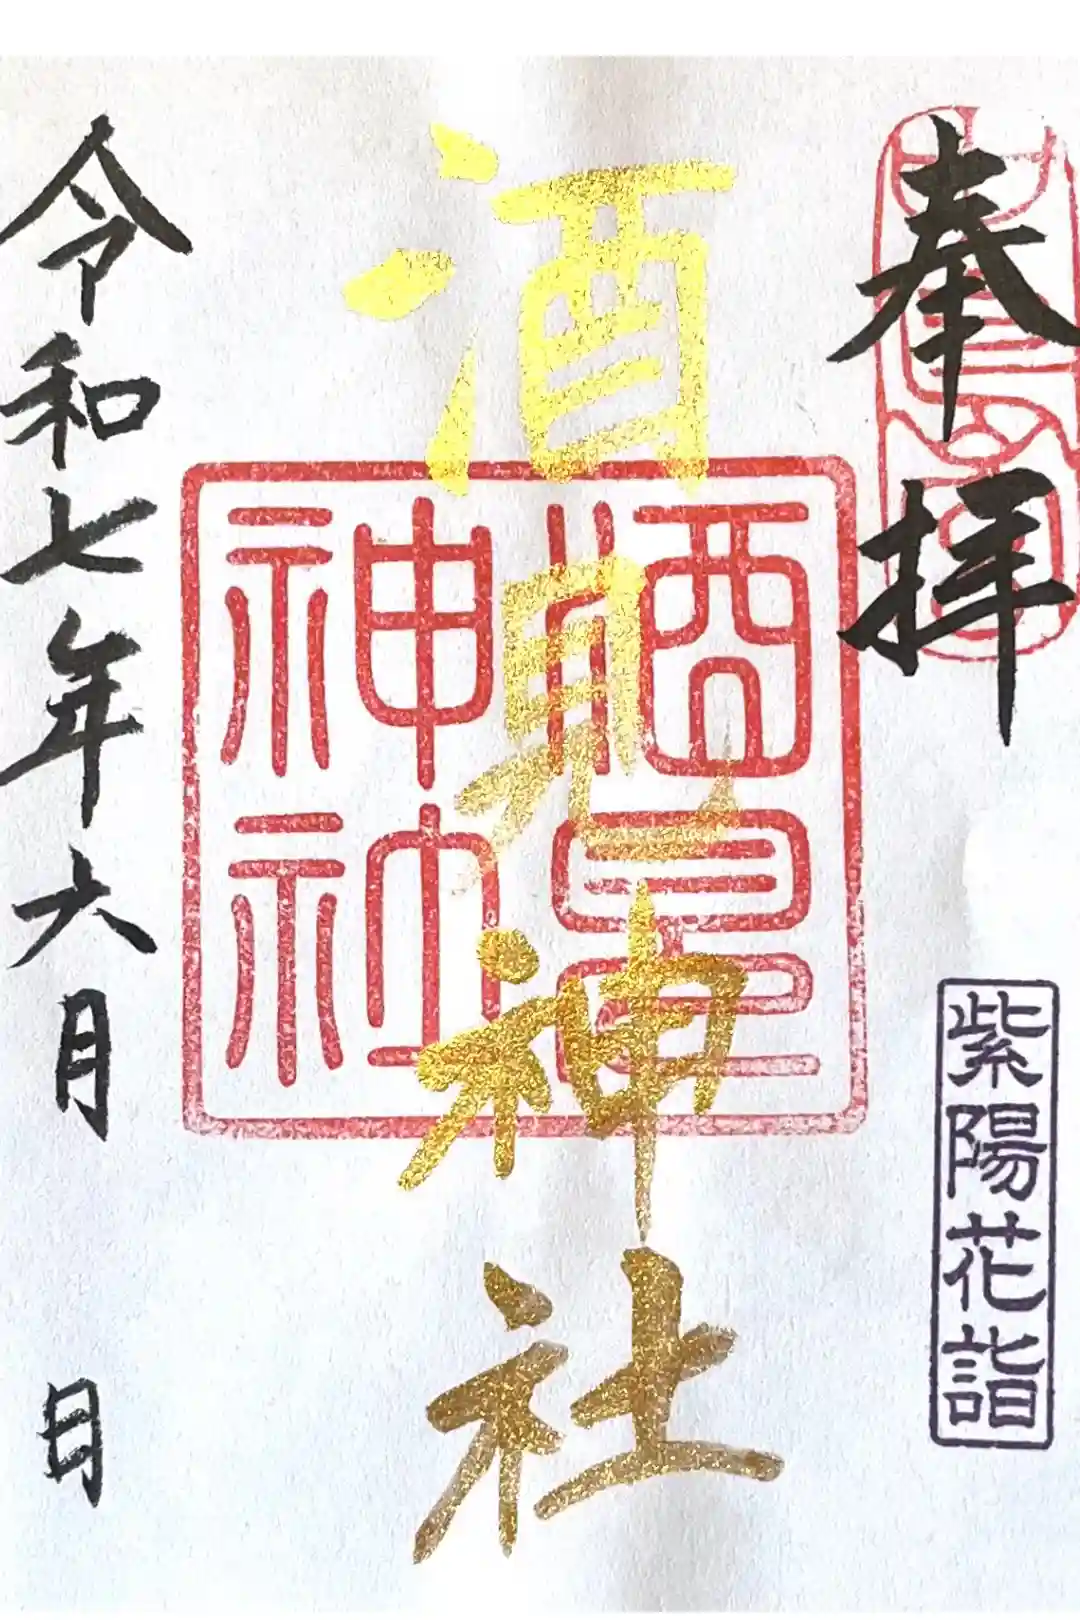 奉拝
紫陽花詣
酒見神社
酒見
神社
令和七年六月 日